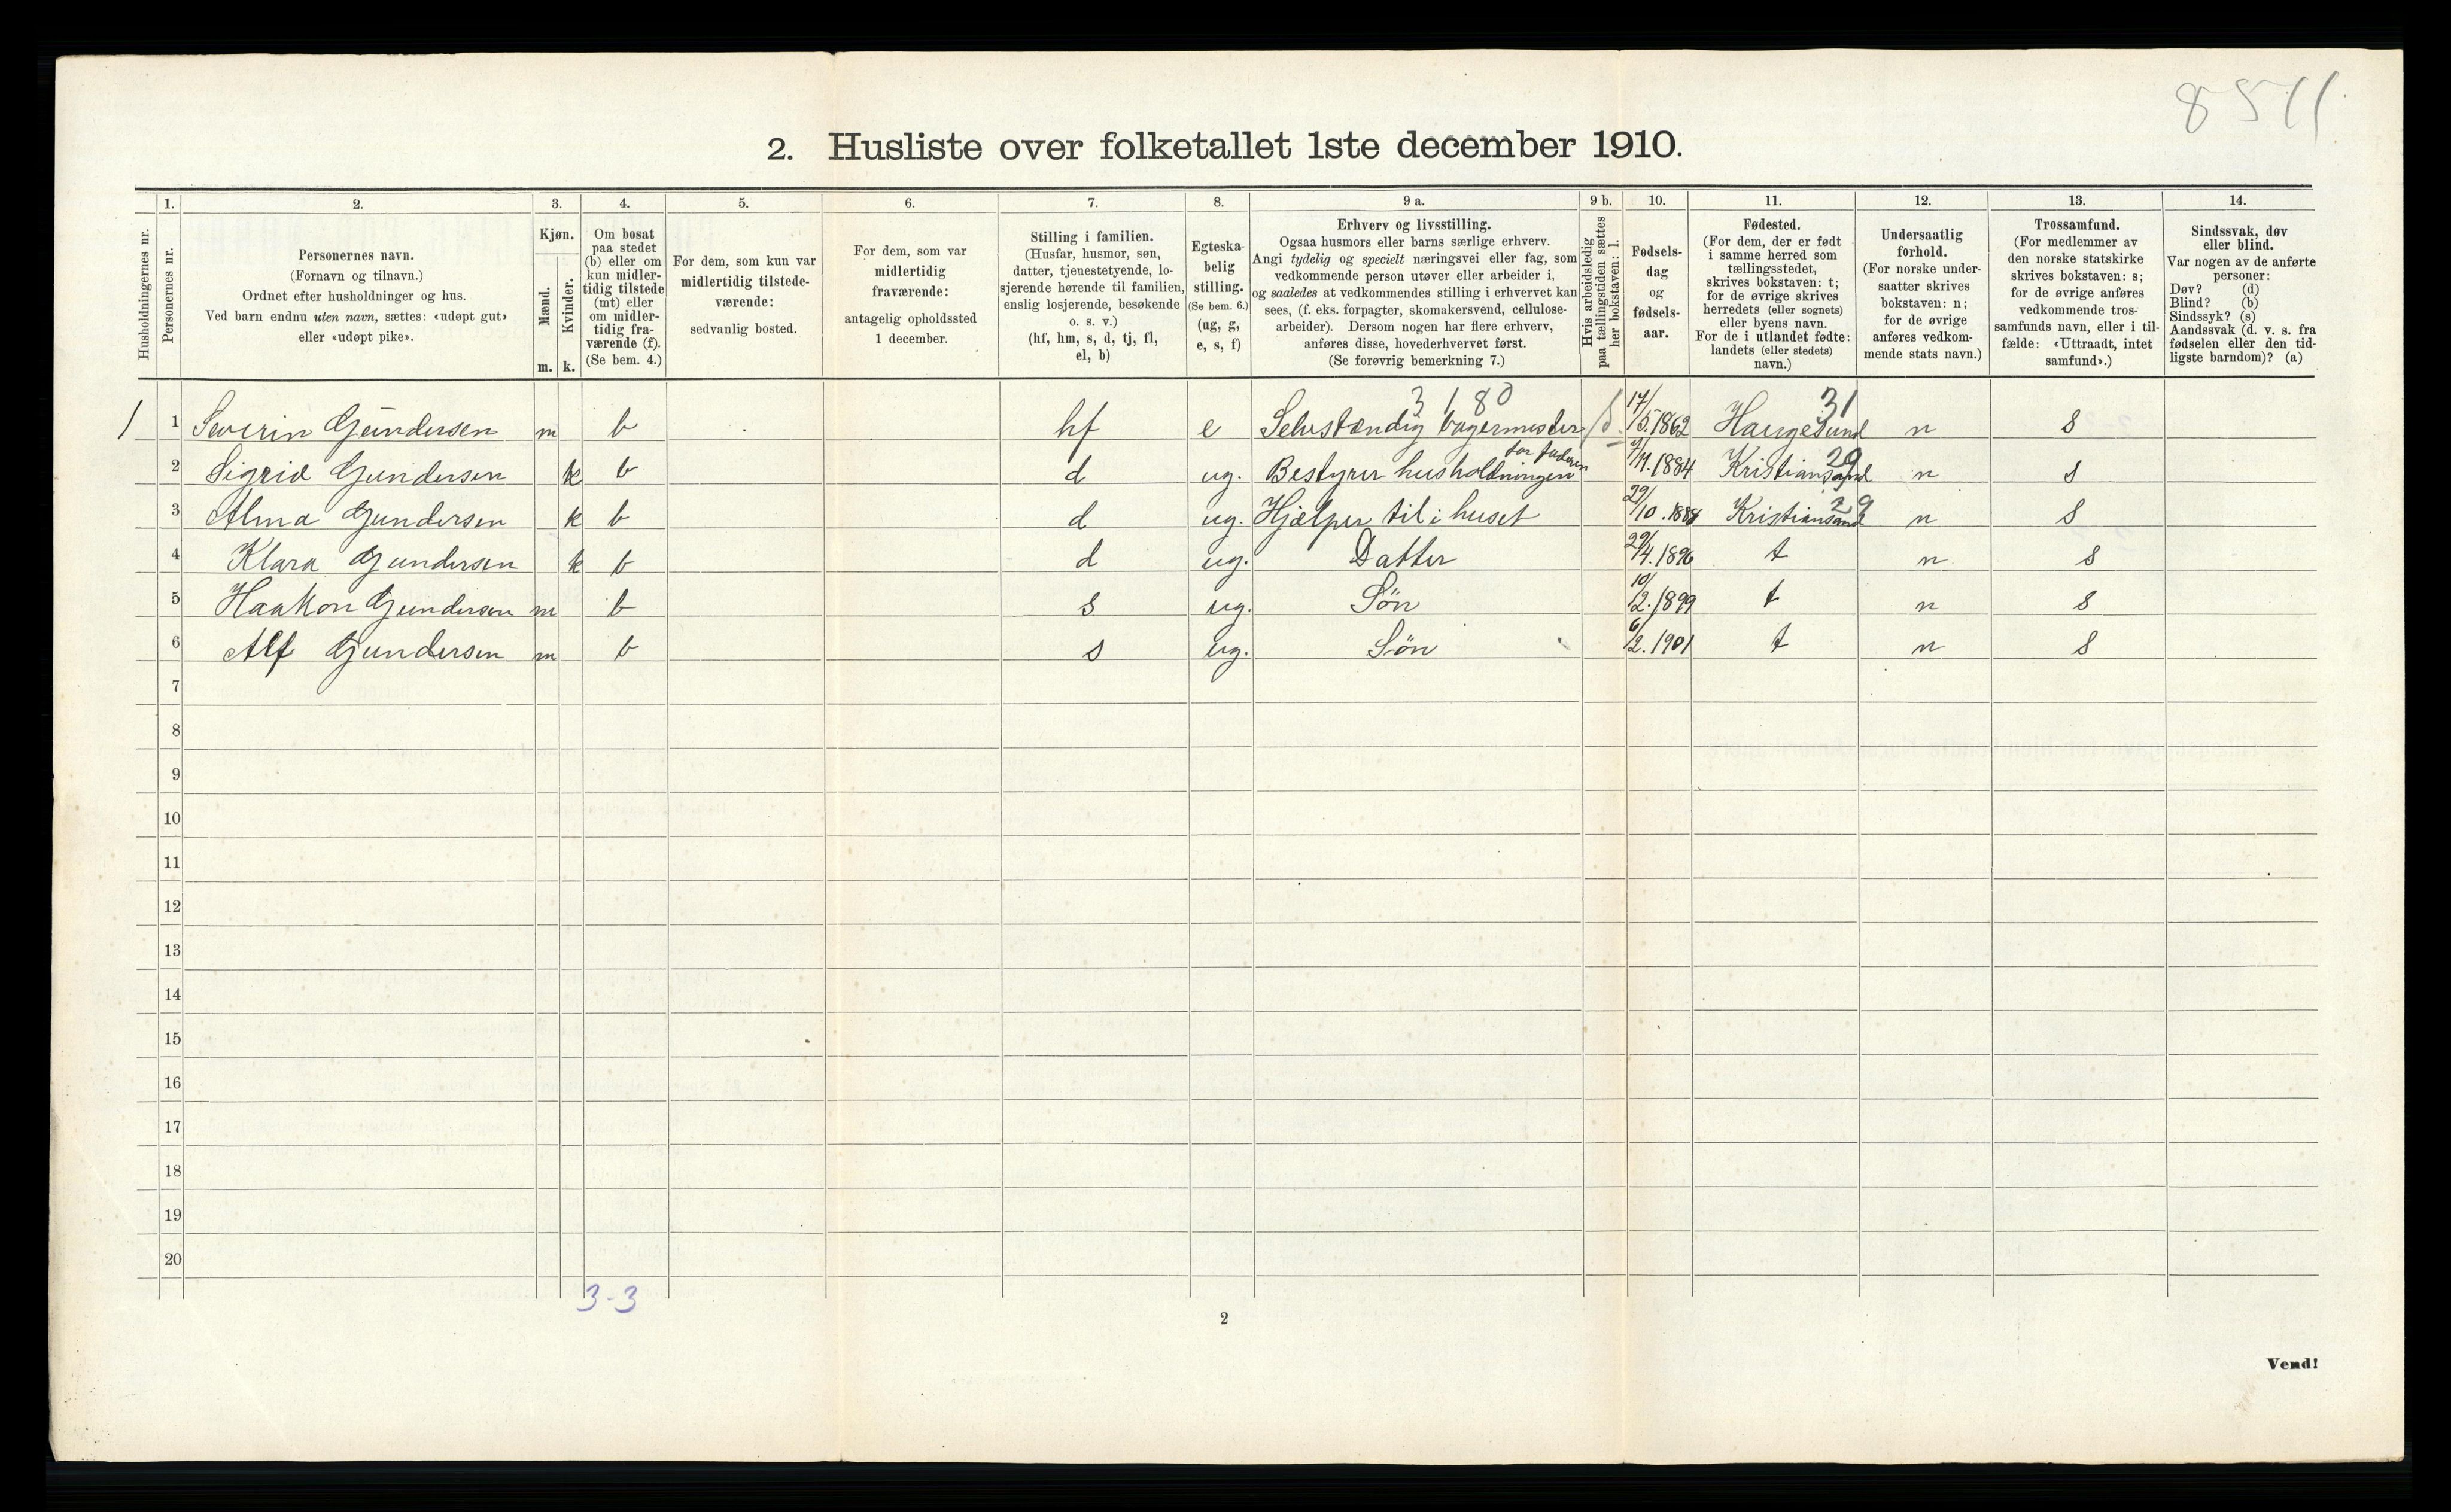 8511
2. Husliste over folketallet 1ste december 1910.
1. 2. 3. 4. 5. 6. 7. 8. 9 a. 9 b. 10. 11. 12. 13. 14.
Husholdningernes nr.
Personernes nr.
Personernes navn.
(Fornavn og tilnavn.)
Ordnet efter husholdninger og hus.
Ved barn endnu uten navn, sættes: «udøpt gut»
eller «udøpt pike».
Kjøn.
Mænd.
Kvinder.
m. k.
Om bosat
paa stedet
(b) eller om
kun midler-
tidig tilstede
(mt) eller
om midler-
tidig fra-
værende (f).
(Se bem. 4.)
For dem, som kun var
midlertidig tilstede-
værende:
sedvanlig bosted.
For dem, som var
midlertidig
fraværende:
antagelig opholdssted
1 december.
Stilling i familien.
(Husfar, husmor, søn,
datter, tjenestetyende, lo-
sjerende hørende til familien,
enslig losjerende, besøkende
o. s. v.)
(hf, hm, s, d, tj, fl,
el, b)
Egteska-
belig
stilling.
(Se bem. 6.)
(ug, g,
e, s, f)
Erhverv og livsstilling.
Ogsaa husmors eller barns særlige erhverv.
Angi tydelig og specielt næringsvei eller fag, som
vedkommende person utøver eller arbeider i,
og saaledes at vedkommendes stilling i erhvervet kan
sees, (f. eks. forpagter, skomakersvend, cellulose-
arbeider). Dersom nogen har flere erhverv,
anføres disse, hovederhvervet først.
(Se forøvrig bemerkning 7.)
Hvis arbeidsledig
paa tællingstiden sættes
her bokstaven: l.
Fødsels-
dag
og
fødsels-
aar.
Fødested.
(For dem, der er født
i samme herred som
tællingsstedet,
skrives bokstaven: t;
for de øvrige skrives
herredets (eller sognets)
eller byens navn.
For de i utlandet fødte:
landets (eller stedets)
navn.)
Undersaatlig
forhold.
(For norske under-
saatter skrives
bokstaven: n;
for de øvrige
anføres vedkom-
mende stats navn.)
Trossamfund.
(For medlemmer av
den norske statskirke
skrives bokstaven: s;
for de øvrige anføres
vedkommende tros-
samfunds navn, eller i til-
fælde: «Uttraadt, intet
samfund».)
Sindssvak, døv
eller blind.
Var nogen av de anførte
personer:
Døv? (d)
Blind? (b)
Sindssyk? (s)
Aandssvak (d. v. s. fra
fødselen eller den tid-
ligste barndom)? (a)
3 1 80 31
1 1 Severin Gundersen m b hf e Selvstændig bagermester 17/5.1862 Haugesund n s
for faderen 29
2 Sigrid Gundersen k b d ug. Bestyrer husholdningen /11.1884 Kristiansand n s
29
3 Alma Gundersen k b d ug. Hjælper til i huset 29/10.1888 Kristiansand n s
4 Klara Gundersen k b d ug. Datter 29/4.1896 t n s
5 Haakon Gundersen m b s ug. Søn 10/2.1899 t n s
6 Alf Gundersen m b s ug. Søn 6/2.1901 t n s
7
8
9
10
11
12
13
14
15
16
17
18
19
20
3-3
2
Vend!